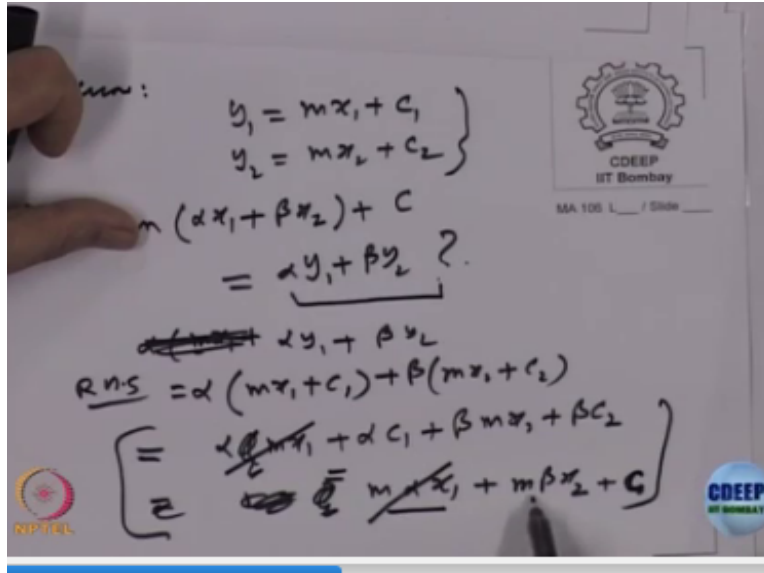 y₁ = mx₁ + c₁ }
y₂ = mx₂ + c₂ }
CDEEP
IIT Bombay
MA 106 L___ / Slide ____
(αx₁ + βx₂) + C
= αy₁ + βy₂ ?
αy₁ + βy₂
R.H.S = α(mx₁ + c₁) + β(mx₂ + c₂)
= α mx₁ + αc₁ + βmx₂ + βc₂
= m α x₁ + mβx₂ + C
NPTEL
CDEEP
IIT BOMBAY